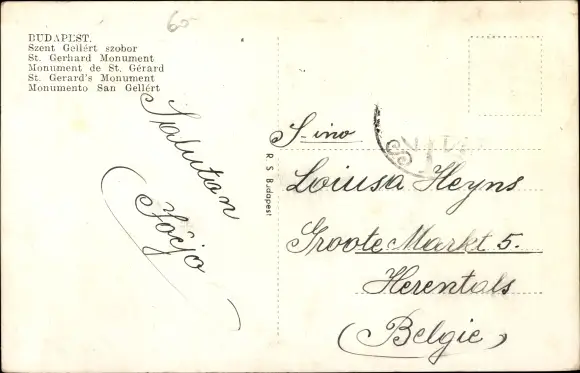 60-
BUDAPEST.
Szent Gellért szobor
St. Gerhard Monument
Monument de St. Gérard
St. Gerard's Monument
Monumento San Gellért
Saluton
Jóéjo
R. S. Budapest
S-ino
Loiusa Heyns
Groote Markt 5.
Herentals
(Belgie)